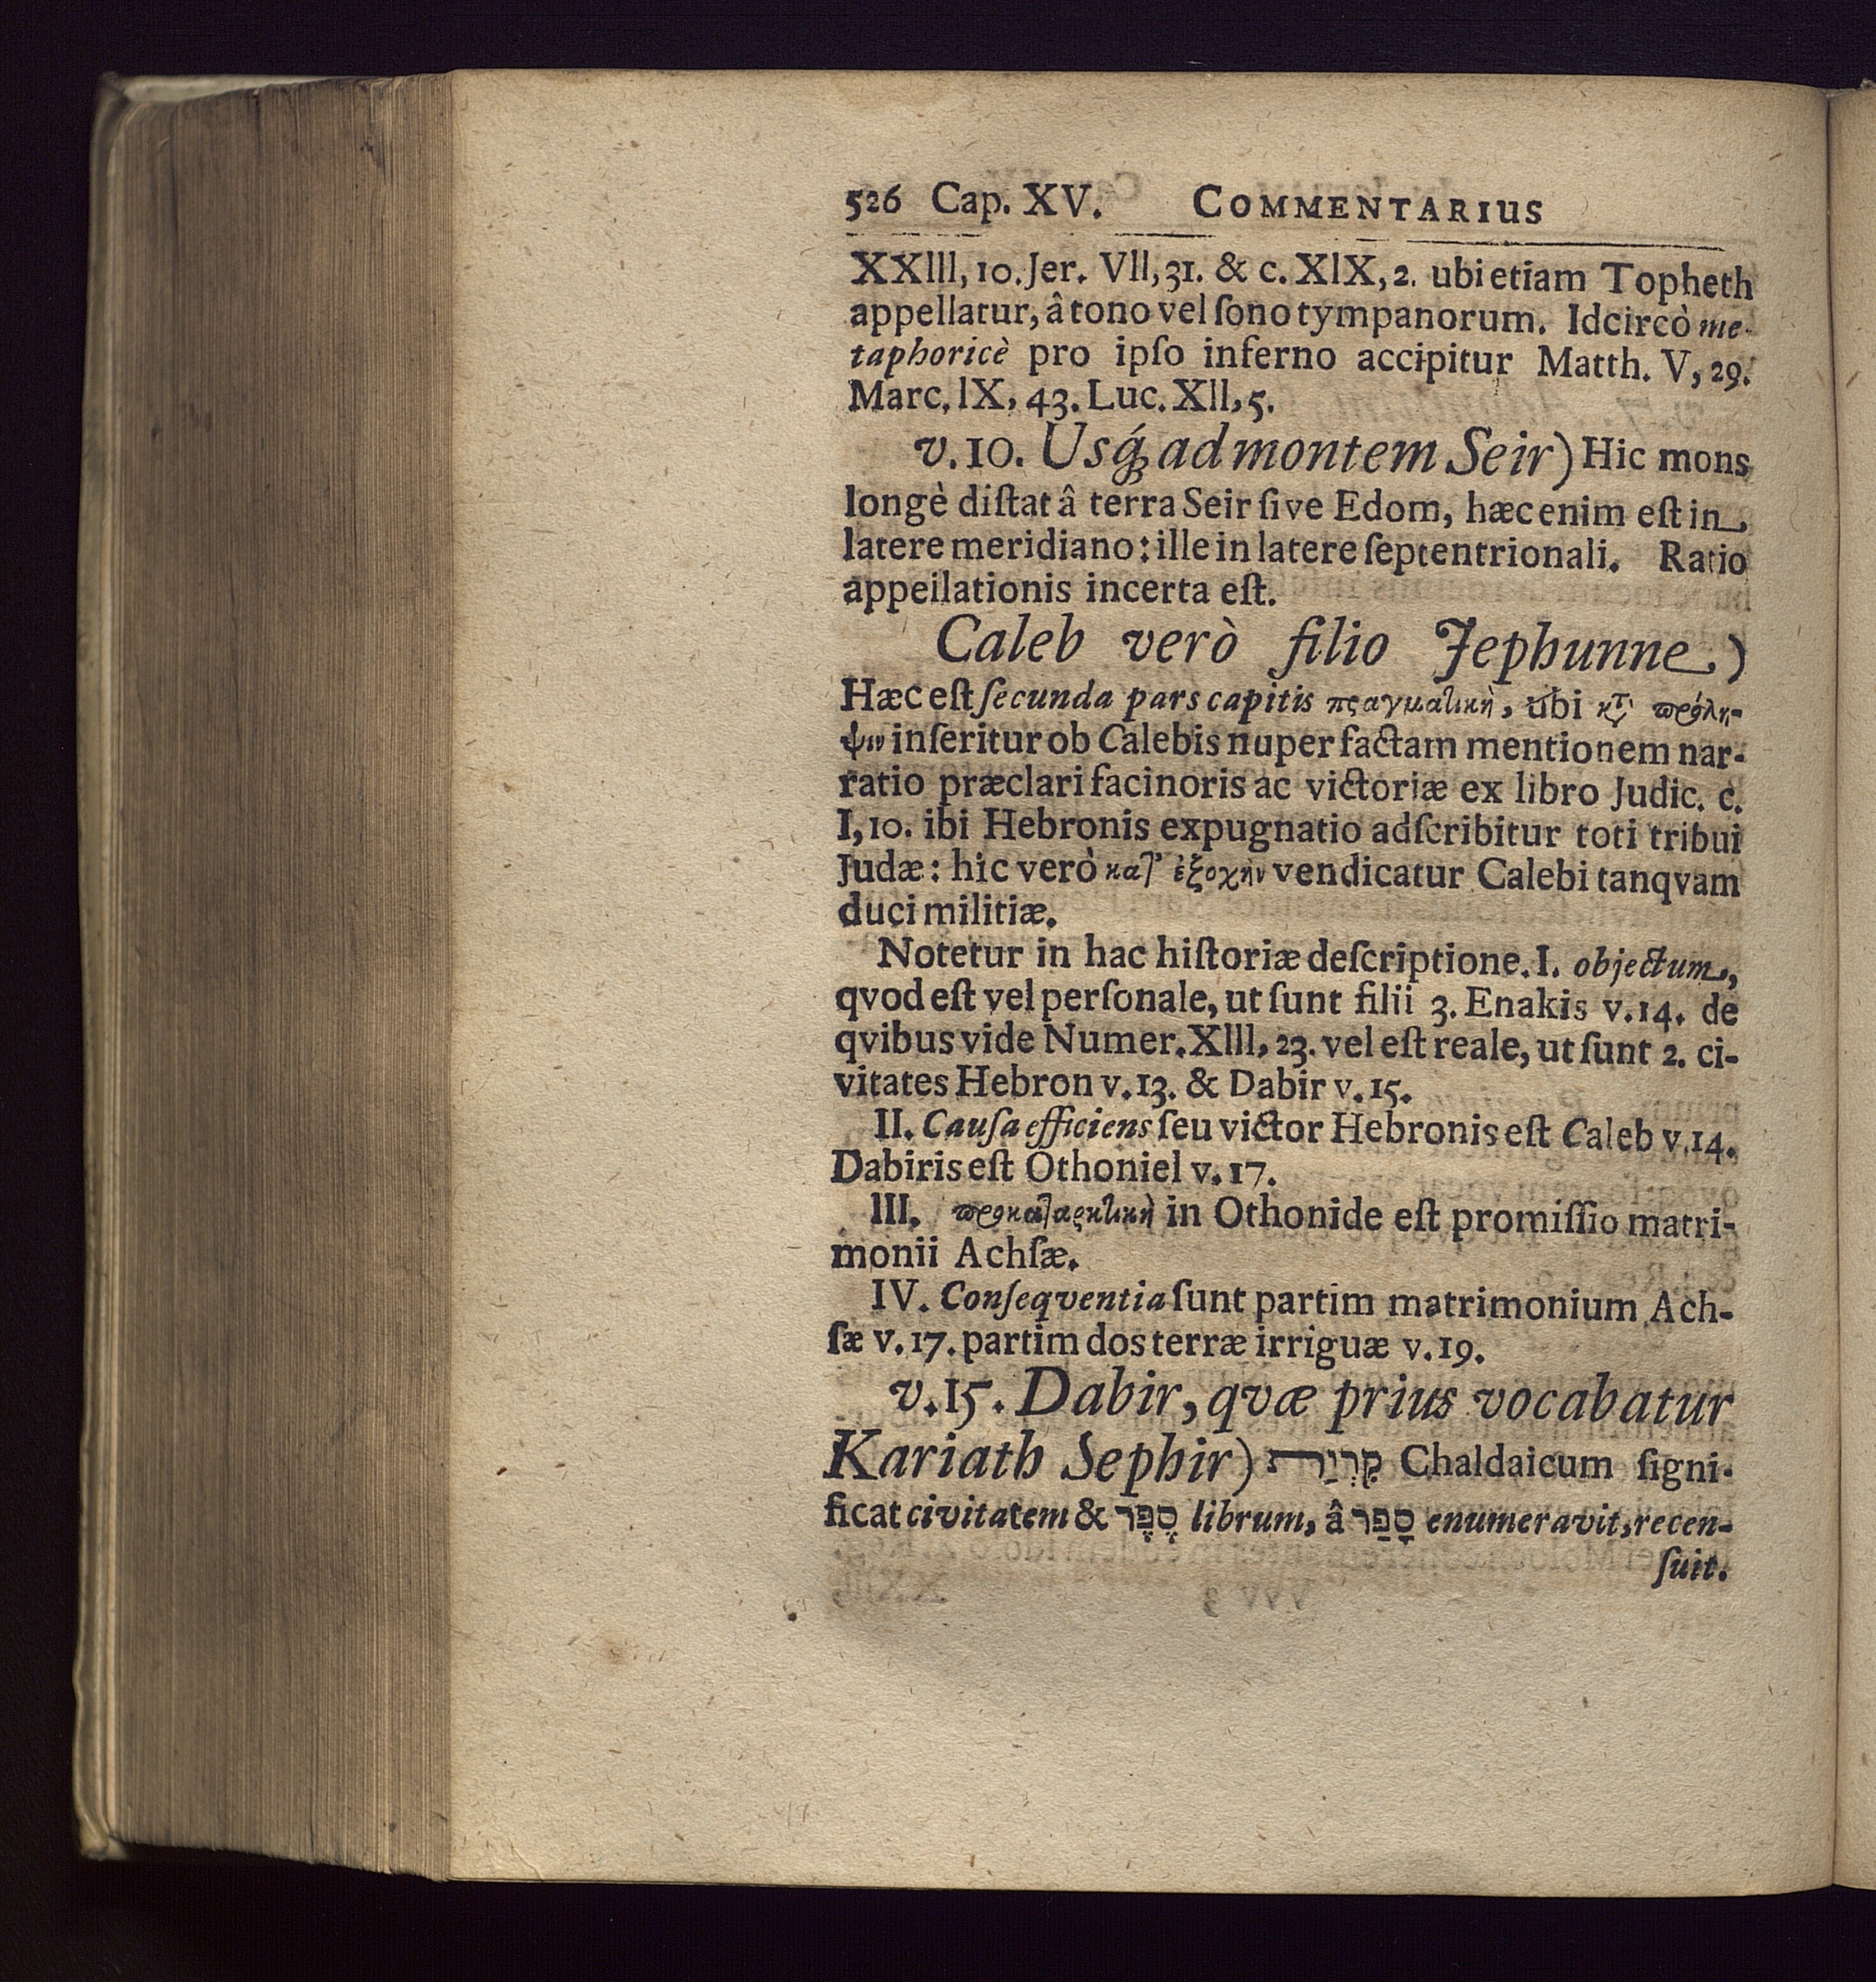 526 Cap. XV. COMMENTARIUS
XXlll, 10. Jer. Vll, 31. & c. XlX, 2. ubi etiam Topheth
appellatur, â tono vel ſono tympanorum. Idcircò me-
taphoricè pro ipſo inferno accipitur Matth. V, 29.
Marc. lX, 43. Luc. Xll, 5.
v. 10. Usq́; ad montem Seir) Hic mons
longè diſtat â terra Seir ſive Edom, hæc enim eſt in
latere meridiano: ille in latere ſeptentrionali. Ratio
appeilationis incerta eſt.
Caleb verò filio Jephunne)
Hæc eſt ſecunda pars capitis πραγματικὴ, ubi κτ̀ πρόλη-
ψιν inſeritur ob Calebis nuper factam mentionem nar-
ratio præclari facinoris ac victoriæ ex libro Judic. c.
I, 10. ibi Hebronis expugnatio adſcribitur toti tribui
Judæ: hic verò κατ' ἐξοχὴν vendicatur Calebi tanqvam
duci militiæ.
Notetur in hac hiſtoriæ deſcriptione. I. objectum,
qvod eſt vel perſonale, ut ſunt filii 3. Enakis v. 14. de
qvibus vide Numer. Xlll, 23. vel eſt reale, ut ſunt 2. ci-
vitates Hebron v. 13. & Dabir v. 15.
II. Cauſa efficiens ſeu victor Hebronis eſt Caleb v. 14.
Dabiris eſt Othoniel v. 17.
III. προκαταρκτικὴ in Othonide eſt promiſſio matri-
monii Achſæ.
IV. Conſeqventia ſunt partim matrimonium Ach-
ſæ v. 17. partim dos terræ irriguæ v. 19.
v. 15. Dabir, qvæ prius vocabatur
Kariath Sephir) קִרְיַת Chaldaicum ſigni-
ficat civitatem & סֶפֶר librum, â סָפַר enumeravit, recen-
ſuit.